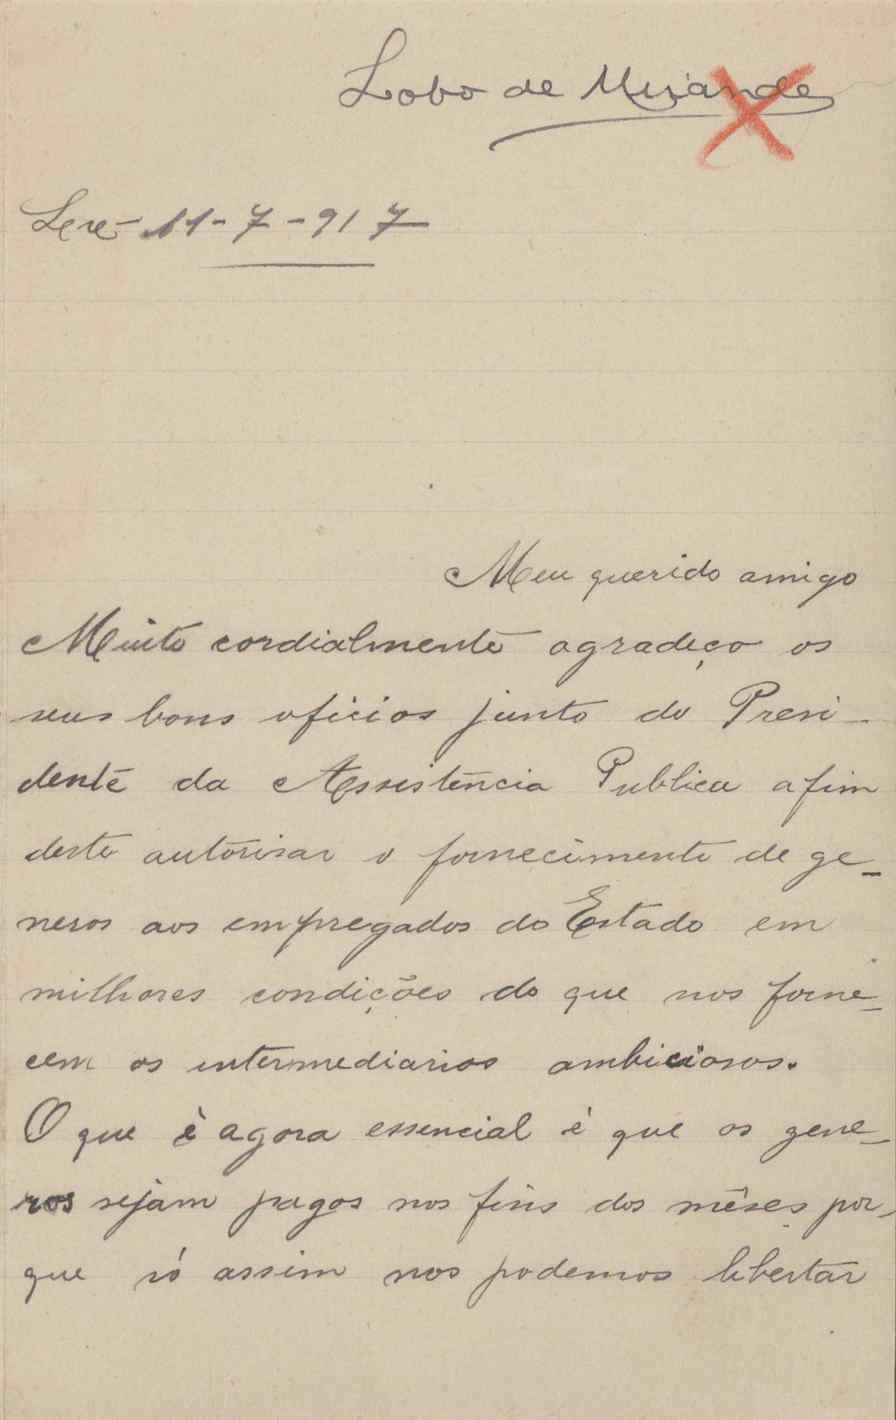 Lobo de Miranda
Lx.ª 11-7-917
Meu querido amigo
Muito cordialmente agradeço os
seus bons oficios junto do Presi-
dente da Assistencia Publica afim
deste autorisar o fornecimento de ge-
neros aos empregados do Estado em
milhores condições do que nos forne-
cem os intermediarios ambiciosos.
O que è agora essencial é que os gene-
ros sejam pagos nos fins dos mêses por-
que só assim nos podemos libertar